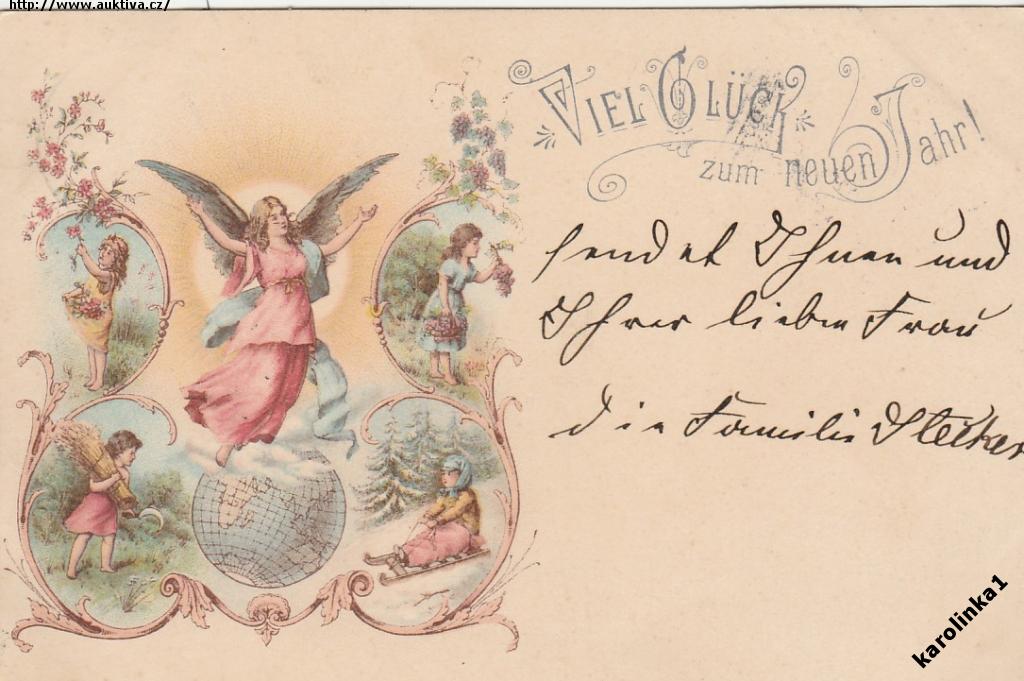 http://www.auktiva.cz/
Viel Glück
zum neuen Jahr!
sendet Ihnen und
Ihrer lieben Frau
die Familie
karolinka1